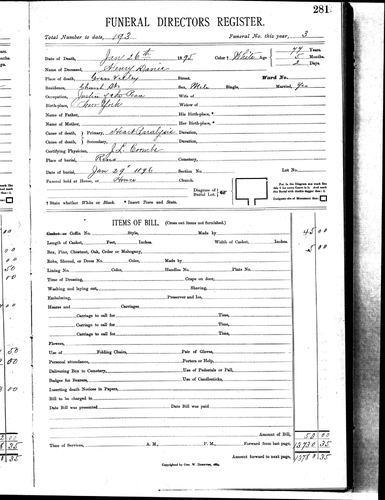 281
FUNERAL DIRECTORS REGISTER.
Total Number to date, 193 Funeral No. this year, 3
Date of Death, Jany 26th 1895 Color † White Age 44 Years. 5 Months 2 Days.
Name of Deceased, Henry
Place of death, Street, Ward No.
Residence, Church St. Sex, Male Single, Married, Yes
Occupation, Justice of the Peace Husband of
Birth-place, New York Widow of
Name of Father, His Birth-place, *
Name of Mother, Her Birth-place, *
Cause of death, Primary, Heart Paralysis Duration,
Cause of death, Secondary, Duration,
Certifying Physician, J. L. Coombs
Place of burial, Reno Cemetery,
Date of burial Jan 29th 1896 Section No Lot No.
Funeral held at House, or Home Church Diagram of Burial Lot.
† State whether White or Black. * Insert Town and State.
Designate site of Monument thus
ITEMS OF BILL. (Cross out items not furnished.)
Casket or Coffin No. Style, Made by 45 00
Length of Casket, Feet, Inches. Width of Casket, Inches.
Box, Pine, Chestnut, Oak, Cedar or Mahogany, 5 00
Robe, Shroud, or Dress No. Color, Made by
Lining No. Color, Handles No. Plate No.
Time of Dressing, Crape on door,
Washing and laying out, Shaving,
Embalming, Preserver and Ice,
Hearse and Carriages,
Carriage to call for Time,
Carriage to call for Time,
Carriage to call for Time,
Carriage to call for Time,
Flowers,
Use of Folding Chairs, Pair of Gloves,
Personal attendance, Porters or Help,
Delivering Box to Cemetery, Use of Pedestals or Pall,
Badges for Bearers, Use of Candlesticks,
Inserting death Notices in Papers,
Bill to be charged to
Date Bill was presented Date Bill was paid
Amount of Bill, 50 00
Time of Services, A. M., P. M., Forward from last page, 13730 35
Amount forward to next page, 13780 35